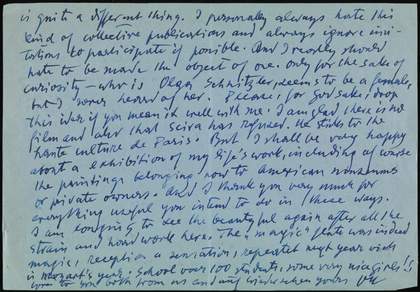 is quite a different thing. I personally always hate this
kind of collective publications and always ignore invi-
tations to participate if possible. And I really should
hate to be made the object of one. Only for the sake of
curiosity – who is Olga Schnitzler, seems to be a female,
but I never heard of her. Please, for God sake, drop
this idea if you mean it well with me. I am glad there is no
film and also that Skira has refused. He sticks to the
haute culture de Paris. But I shall be very happy
about a exhibition of my life's work, including of course
the paintings belonging now to American museums
or private owners. And I thank you very much for
everything useful you intend to do in these ways.
I am longing to see the beautiful again after all the
strain and hard work here. The "magic" flute was indeed
magic, reception a sensation, repeated next year which
is Mozart's year, School over 100 students, some very nice girls!
Love to you both from us and